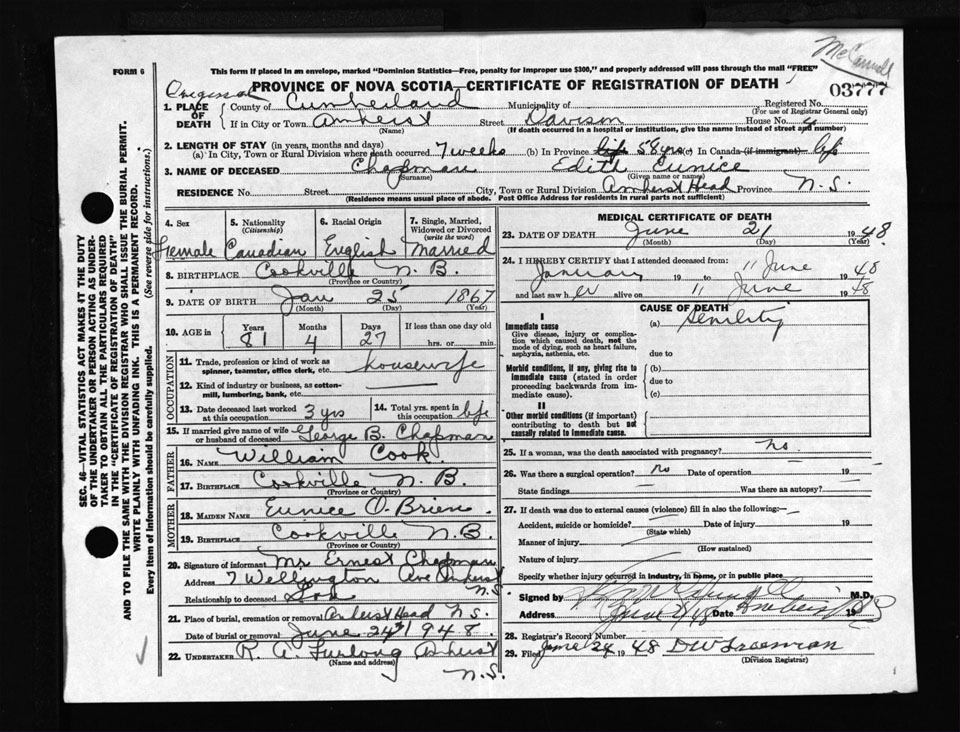 McCarroll
FORM 6
This form if placed in an envelope, marked "Dominion Statistics—Free, penalty for improper use $300," and properly addressed will pass through the mail "FREE"
Original
PROVINCE OF NOVA SCOTIA—CERTIFICATE OF REGISTRATION OF DEATH
03777
1. PLACE OF DEATH County of Cumberland Municipality of Registered No.
(For use of Registrar General only)
If in City or Town Amherst Street Davison House No. 4
(Name) (If death occurred in a hospital or institution, give the name instead of street and number)
2. LENGTH OF STAY (in years, months and days)
(a) In City, Town or Rural Division where death occurred 7 weeks (b) In Province life 58 yrs (c) In Canada (if immigrant) life
3. NAME OF DECEASED Chapman Edith Eunice
(Surname) (Given name or names)
RESIDENCE No. Street City, Town or Rural Division Amherst Head Province N.S.
(Residence means usual place of abode. Post Office Address for residents in rural parts not sufficient)
4. Sex 5. Nationality (Citizenship) 6. Racial Origin 7. Single, Married, Widowed or Divorced (write the word)
Female Canadian English Married
8. BIRTHPLACE Cookville N.B.
(Province or Country)
9. DATE OF BIRTH Jan 25 1867
(Month) (Day) (Year)
10. AGE in Years Months Days If less than one day old
81 4 27 hrs. or min.
OCCUPATION
11. Trade, profession or kind of work as spinner, teamster, office clerk, etc. housewife
12. Kind of industry or business, as cotton-mill, lumbering, bank, etc.
13. Date deceased last worked at this occupation 3 yrs 14. Total yrs. spent in this occupation life
15. If married give name of wife or husband of deceased George B. Chapman
FATHER
16. NAME William Cook
17. BIRTHPLACE Cookville N.B.
(Province or Country)
MOTHER
18. MAIDEN NAME Eunice O'Brien
19. BIRTHPLACE Cookville N.B.
(Province or Country)
20. Signature of informant Mr Ernest Chapman
Address 7 Wellington Ave Amherst N.S.
Relationship to deceased Son
21. Place of burial, cremation or removal Amherst Head N.S.
Date of burial or removal June 24th 1948.
22. UNDERTAKER R. A. Furlong Amherst
(Name and address)
N.S.
MEDICAL CERTIFICATE OF DEATH
23. DATE OF DEATH June 21 1948.
(Month) (Day) (Year)
24. I HEREBY CERTIFY that I attended deceased from:
January 19 to 11 June 1948
and last saw her alive on 11 June 1948
CAUSE OF DEATH
I
Immediate cause (a) Senility
Give disease, injury or complication which caused death, not the mode of dying, such as heart failure, asphyxia, asthenia, etc.
due to
Morbid conditions, if any, giving rise to immediate cause (stated in order proceeding backwards from immediate cause).
(b)
due to
(c)
II
Other morbid conditions (if important) contributing to death but not causally related to immediate cause.
25. If a woman, was the death associated with pregnancy? no
26. Was there a surgical operation? no Date of operation 19
State findings Was there an autopsy?
27. If death was due to external causes (violence) fill in also the following:—
Accident, suicide or homicide? Date of injury 19
(State which)
Manner of injury
(How sustained)
Nature of injury
Specify whether injury occurred in industry, in home, or in public place
Signed by M.D.
Address Date 19
28. Registrar's Record Number
29. Filed June 24 1948 D W Freeman
(Division Registrar)
SEC. 46—VITAL STATISTICS ACT MAKES IT THE DUTY
OF THE UNDERTAKER OR PERSON ACTING AS UNDER-
TAKER TO OBTAIN ALL THE PARTICULARS REQUIRED
IN THE "CERTIFICATE OF REGISTRATION OF DEATH"
AND TO FILE THE SAME WITH THE DIVISION REGISTRAR WHO SHALL ISSUE THE BURIAL PERMIT.
WRITE PLAINLY WITH UNFADING INK. THIS IS A PERMANENT RECORD.
Every item of information should be carefully supplied. (See reverse side for instructions.)